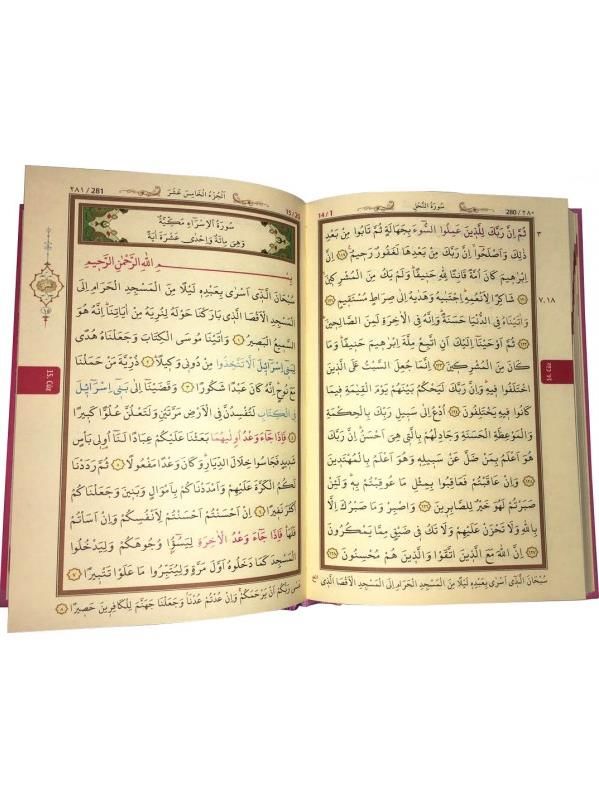 280 / ٢٨٠ سُورَةُ النَّحْلِ 14 / 1
ثُمَّ اِنَّ رَبَّكَ لِلَّذ۪ينَ عَمِلُوا السُّٓوءَ بِجَهَالَةٍ ثُمَّ تَابُوا مِنْ بَعْدِ
ذٰلِكَ وَاَصْلَحُٓوا اِنَّ رَبَّكَ مِنْ بَعْدِهَا لَغَفُورٌ رَح۪يمٌ ﴿١١٩﴾ اِنَّ
اِبْرٰه۪يمَ كَانَ اُمَّةً قَانِتًا لِلّٰهِ حَن۪يفًا وَلَمْ يَكُ مِنَ الْمُشْرِك۪ينَ
﴿١٢٠﴾ شَاكِرًا لِاَنْعُمِه۪ اِجْتَبٰيهُ وَهَدٰيهُ اِلٰى صِرَاطٍ مُسْتَق۪يمٍ ﴿١٢١﴾
وَاٰتَيْنَاهُ فِي الدُّنْيَا حَسَنَةً وَاِنَّهُ فِي الْاٰخِرَةِ لَمِنَ الصَّالِح۪ينَ
﴿١٢٢﴾ ثُمَّ اَوْحَيْنَٓا اِلَيْكَ اَنِ اتَّبِعْ مِلَّةَ اِبْرٰه۪يمَ حَن۪يفًا وَمَا
كَانَ مِنَ الْمُشْرِك۪ينَ ﴿١٢٣﴾ اِنَّمَا جُعِلَ السَّبْتُ عَلَى الَّذ۪ينَ
اخْتَلَفُوا ف۪يهِ وَاِنَّ رَبَّكَ لَيَحْكُمُ بَيْنَهُمْ يَوْمَ الْقِيٰمَةِ ف۪يمَا
كَانُوا ف۪يهِ يَخْتَلِفُونَ ﴿١٢٤﴾ اُدْعُ اِلٰى سَب۪يلِ رَبِّكَ بِالْحِكْمَةِ
وَالْمَوْعِظَةِ الْحَسَنَةِ وَجَادِلْهُمْ بِالَّت۪ي هِيَ اَحْسَنُ اِنَّ رَبَّكَ
هُوَ اَعْلَمُ بِمَنْ ضَلَّ عَنْ سَب۪يلِه۪ وَهُوَ اَعْلَمُ بِالْمُهْتَد۪ينَ
﴿١٢٥﴾ وَاِنْ عَاقَبْتُمْ فَعَاقِبُوا بِمِثْلِ مَا عُوقِبْتُمْ بِه۪ وَلَئِنْ
صَبَرْتُمْ لَهُوَ خَيْرٌ لِلصَّابِر۪ينَ ﴿١٢٦﴾ وَاصْبِرْ وَمَا صَبْرُكَ اِلَّا
بِاللّٰهِ وَلَا تَحْزَنْ عَلَيْهِمْ وَلَا تَكُ ف۪ي ضَيْقٍ مِمَّا يَمْكُرُونَ
﴿١٢٧﴾ اِنَّ اللّٰهَ مَعَ الَّذ۪ينَ اتَّقَوْا وَالَّذ۪ينَ هُمْ مُحْسِنُونَ ﴿١٢٨﴾
سُبْحَانَ الَّذ۪ٓي اَسْرٰى بِعَبْدِه۪ لَيْلًا مِنَ الْمَسْجِدِ الْحَرَامِ اِلَى الْمَسْجِدِ الْاَقْصَا الَّذ۪ي
٣
٧،١٨
14. Cüz
15 / 20 اَلْجُزْءُ الْخَامِسَ عَشَرَ ٢٨١ / 281
سُورَةُ الْاِسْرَٓاءِ مَكِّيَّةٌ
وَهِيَ مِائَةٌ وَاِحْدٰى عَشْرَةَ اٰيَةً
بِسْمِ اللّٰهِ الرَّحْمٰنِ الرَّح۪يمِ
سُبْحَانَ الَّذ۪ٓي اَسْرٰى بِعَبْدِه۪ لَيْلًا مِنَ الْمَسْجِدِ الْحَرَامِ اِلَى
الْمَسْجِدِ الْاَقْصَا الَّذ۪ي بَارَكْنَا حَوْلَهُ لِنُرِيَهُ مِنْ اٰيَاتِنَا اِنَّهُ هُوَ
السَّم۪يعُ الْبَص۪يرُ ﴿١﴾ وَاٰتَيْنَا مُوسَى الْكِتَابَ وَجَعَلْنَاهُ هُدًى
لِبَن۪ٓي اِسْرَٓائ۪لَ اَلَّا تَتَّخِذُوا مِنْ دُون۪ي وَك۪يلًا ﴿٢﴾ ذُرِّيَّةَ مَنْ حَمَلْنَا
مَعَ نُوحٍ اِنَّهُ كَانَ عَبْدًا شَكُورًا ﴿٣﴾ وَقَضَيْنَٓا اِلٰى بَن۪ٓي اِسْرَٓائ۪لَ
فِي الْكِتَابِ لَتُفْسِدُنَّ فِي الْاَرْضِ مَرَّتَيْنِ وَلَتَعْلُنَّ عُلُوًّا كَب۪يرًا
﴿٤﴾ فَاِذَا جَٓاءَ وَعْدُ اُو۫لٰيهُمَا بَعَثْنَا عَلَيْكُمْ عِبَادًا لَنَٓا اُو۬ل۪ي بَأْسٍ
شَد۪يدٍ فَجَاسُوا خِلَالَ الدِّيَارِ وَكَانَ وَعْدًا مَفْعُولًا ﴿٥﴾ ثُمَّ رَدَدْنَا
لَكُمُ الْكَرَّةَ عَلَيْهِمْ وَاَمْدَدْنَاكُمْ بِاَمْوَالٍ وَبَن۪ينَ وَجَعَلْنَاكُمْ
اَكْثَرَ نَف۪يرًا ﴿٦﴾ اِنْ اَحْسَنْتُمْ اَحْسَنْتُمْ لِاَنْفُسِكُمْ وَاِنْ اَسَأْتُمْ
فَلَهَا فَاِذَا جَٓاءَ وَعْدُ الْاٰخِرَةِ لِيَسُٓؤُ۫ا وُجُوهَكُمْ وَلِيَدْخُلُوا
الْمَسْجِدَ كَمَا دَخَلُوهُ اَوَّلَ مَرَّةٍ وَلِيُتَبِّرُوا مَا عَلَوْا تَتْب۪يرًا ﴿٧﴾
عَسٰى رَبُّكُمْ اَنْ يَرْحَمَكُمْ وَاِنْ عُدْتُمْ عُدْنَا وَجَعَلْنَا جَهَنَّمَ لِلْكَافِر۪ينَ حَص۪يرًا ﴿٨﴾
15. Cüz